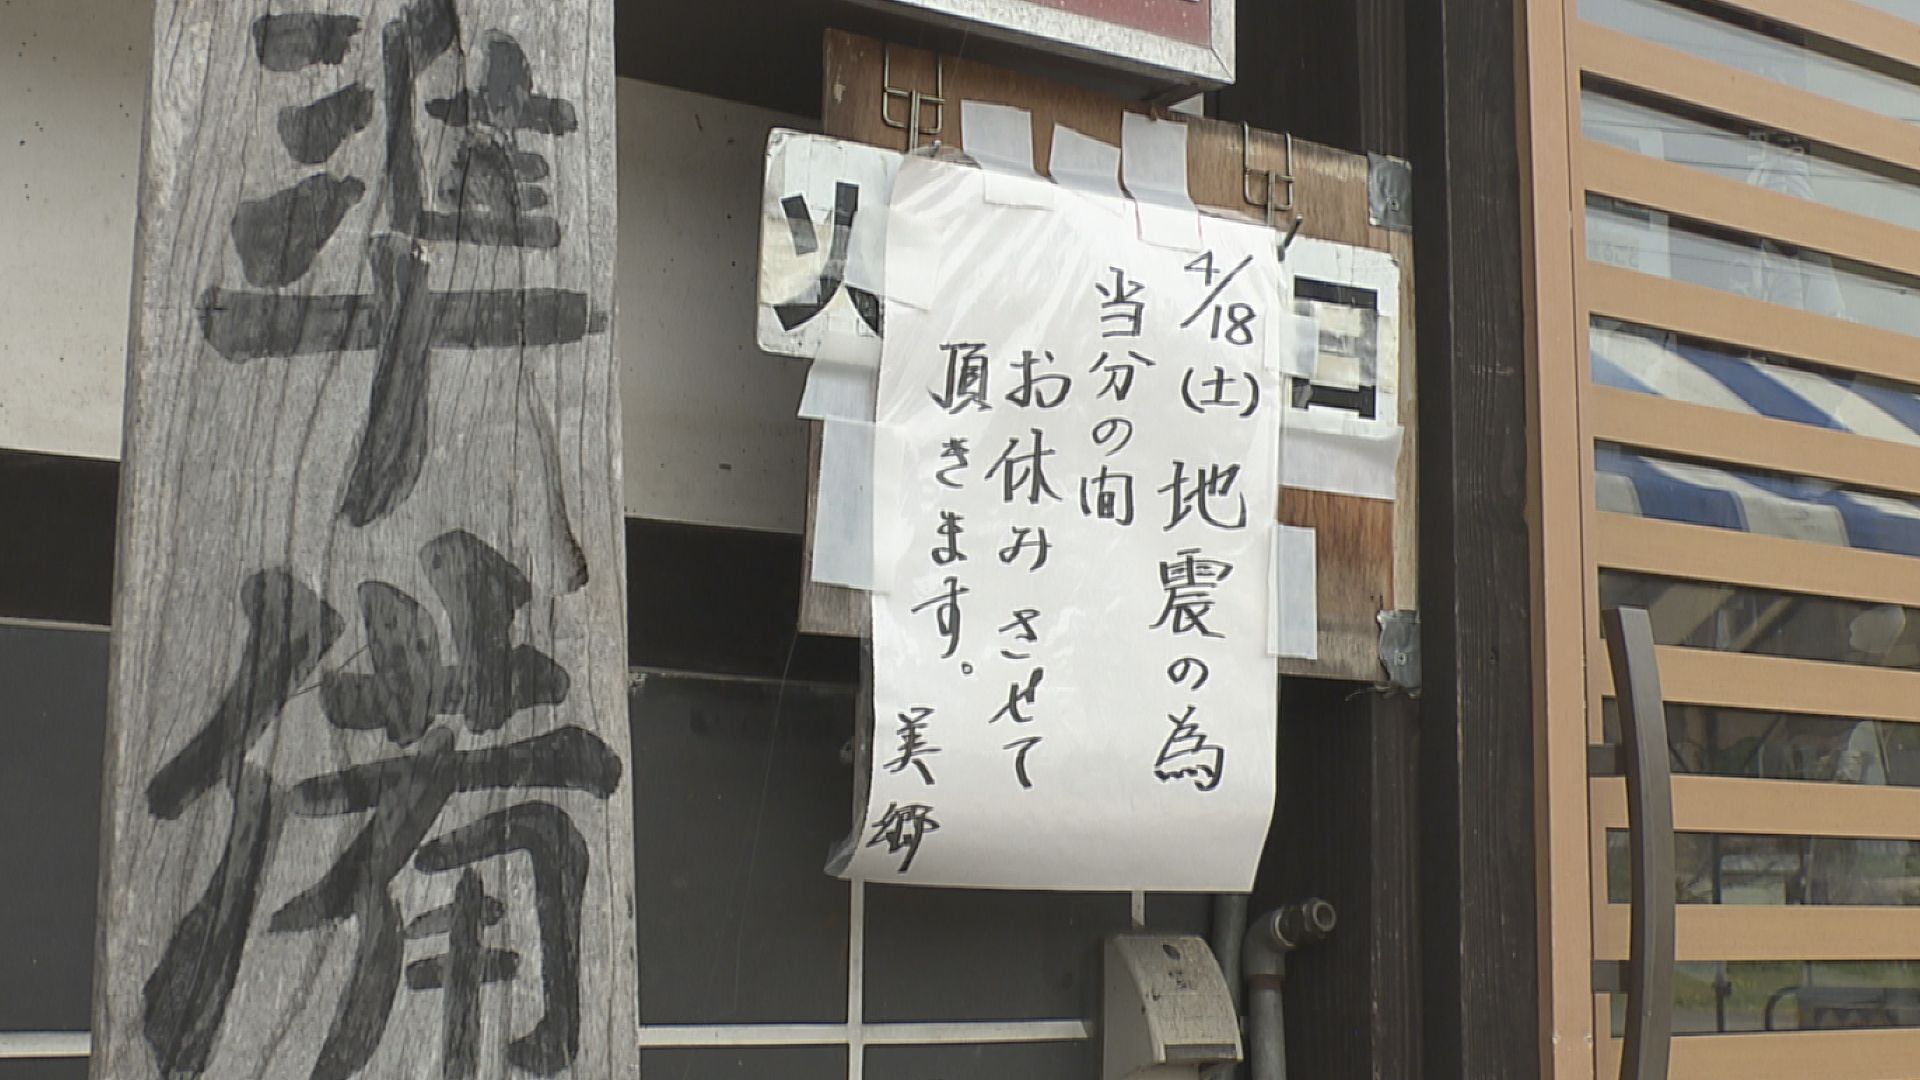 準備
火
日
4/18(土) 地震の為
当分の間
お休みさせて
頂きます。
美郷